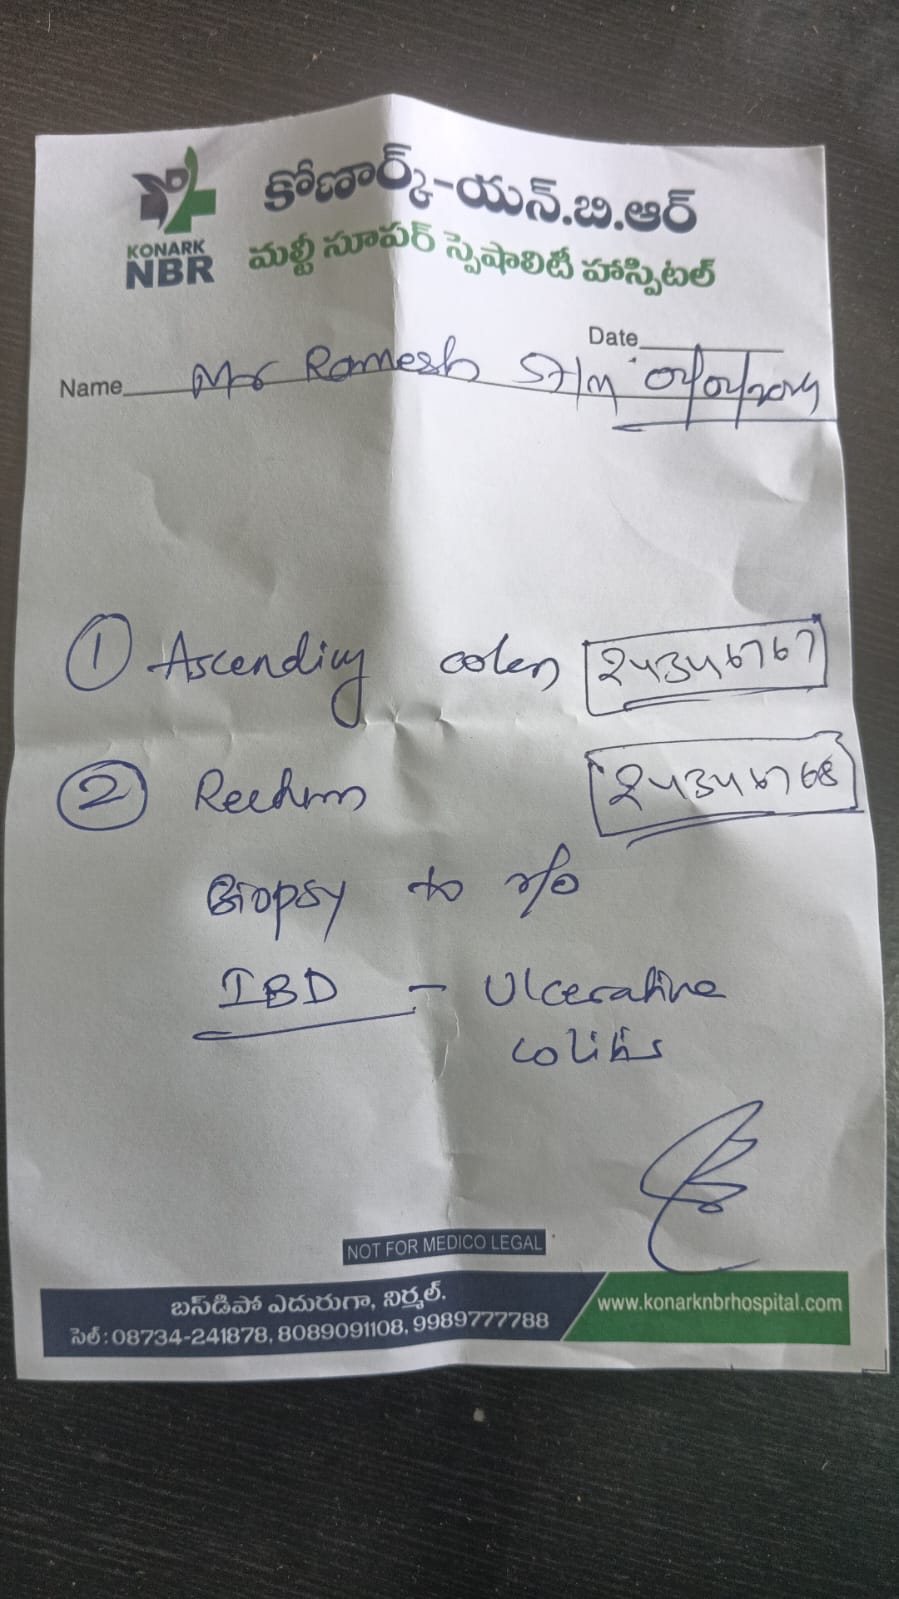 KONARK
NBR
కోణార్క్-యన్.బి.ఆర్
మల్టీ సూపర్ స్పెషాలిటీ హాస్పిటల్
Date
Name Mr Ramesh 57/M
① Ascending colon 24346767
② Rectum 24346768
Biopsy to r/o
IBD - Ulcerative
colitis
NOT FOR MEDICO LEGAL
బస్‌డిపో ఎదురుగా, నిర్మల్.
సెల్: 08734-241878, 8089091108, 9989777788
www.konarknbrhospital.com